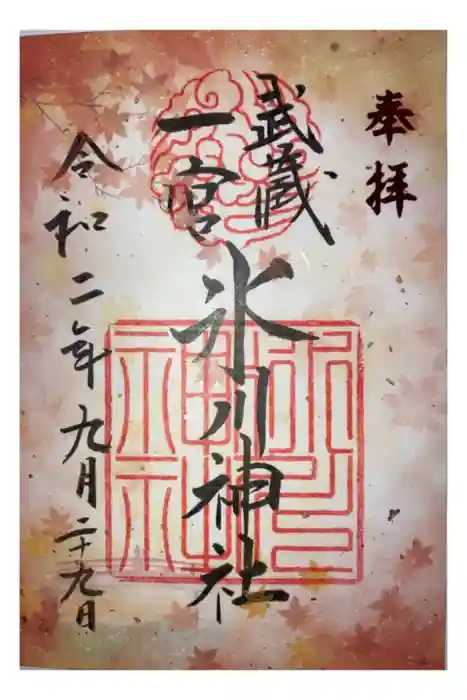 奉拝
武蔵
一宮
氷川神社
令和二年九月二十九日
氷川
神社